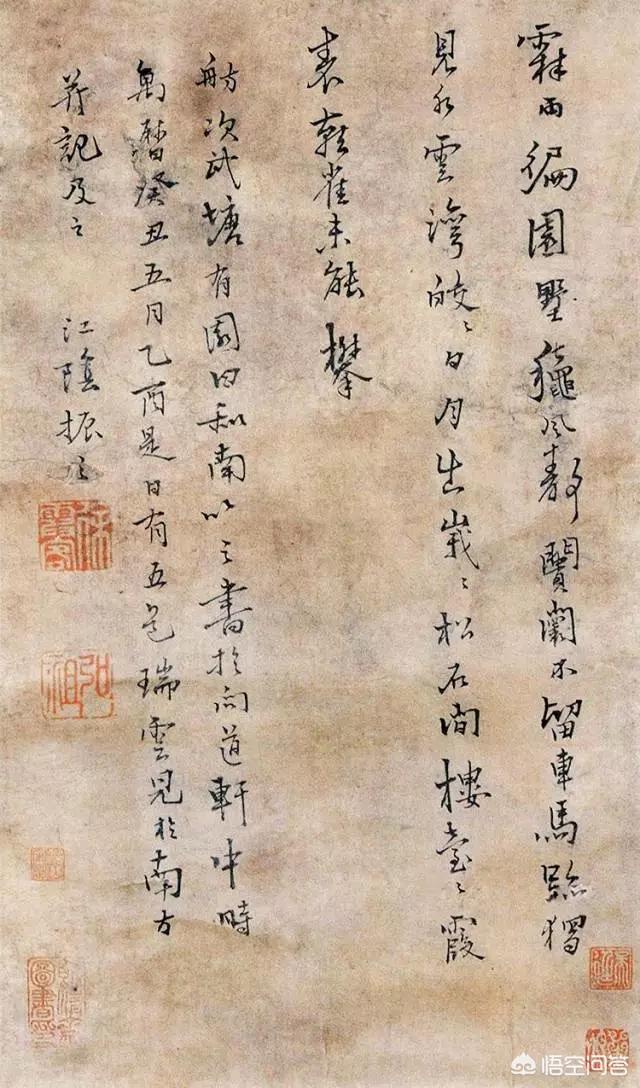 霖雨徧園墅龝風闌不留車馬跡獨
見水雲灣皎〻日月出峩〻松石間樓臺〻霞
表雀未能攀
舫次武塘有園曰和南以之書於問道軒中時
萬曆癸丑五月乙酉是日有五色瑞雲見於南方
并記及之 江陰振之
弘祖
悟空问答